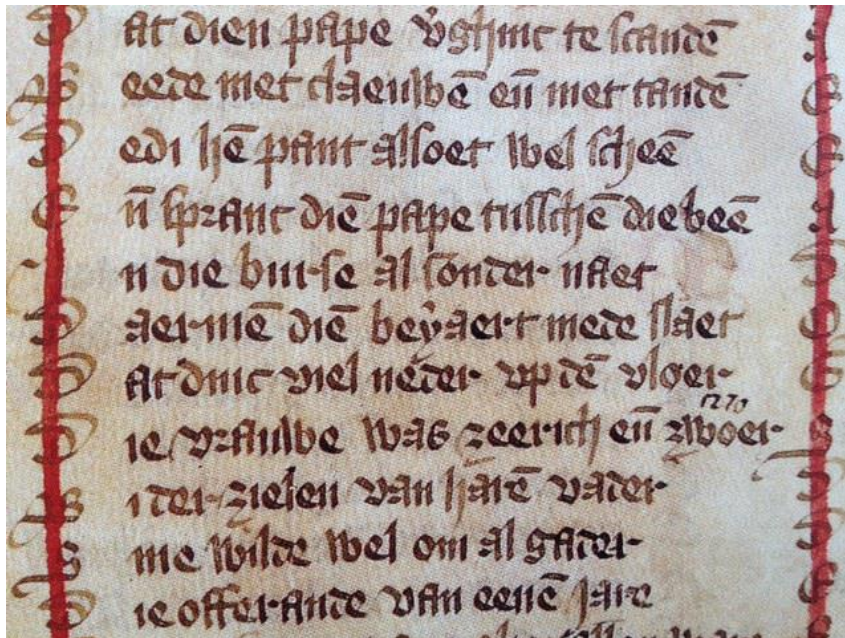 D at dien pape v̓ghinc te scandē
B eede met claeuwē eñ met tandē
D edi hē pant alsoet wel scheē
E n̄ spranc diē pape tusschē die beē
n die burse al sonder naet
D aer mē diē beẏaert mede slaet
D at dinc viel neder up dē vloer
1270
D ie vrauwe was zeerich eñ zwoer
B i der zielen van harē vader
S ine wilde wel om al gader
D ie offerande van eenē jare